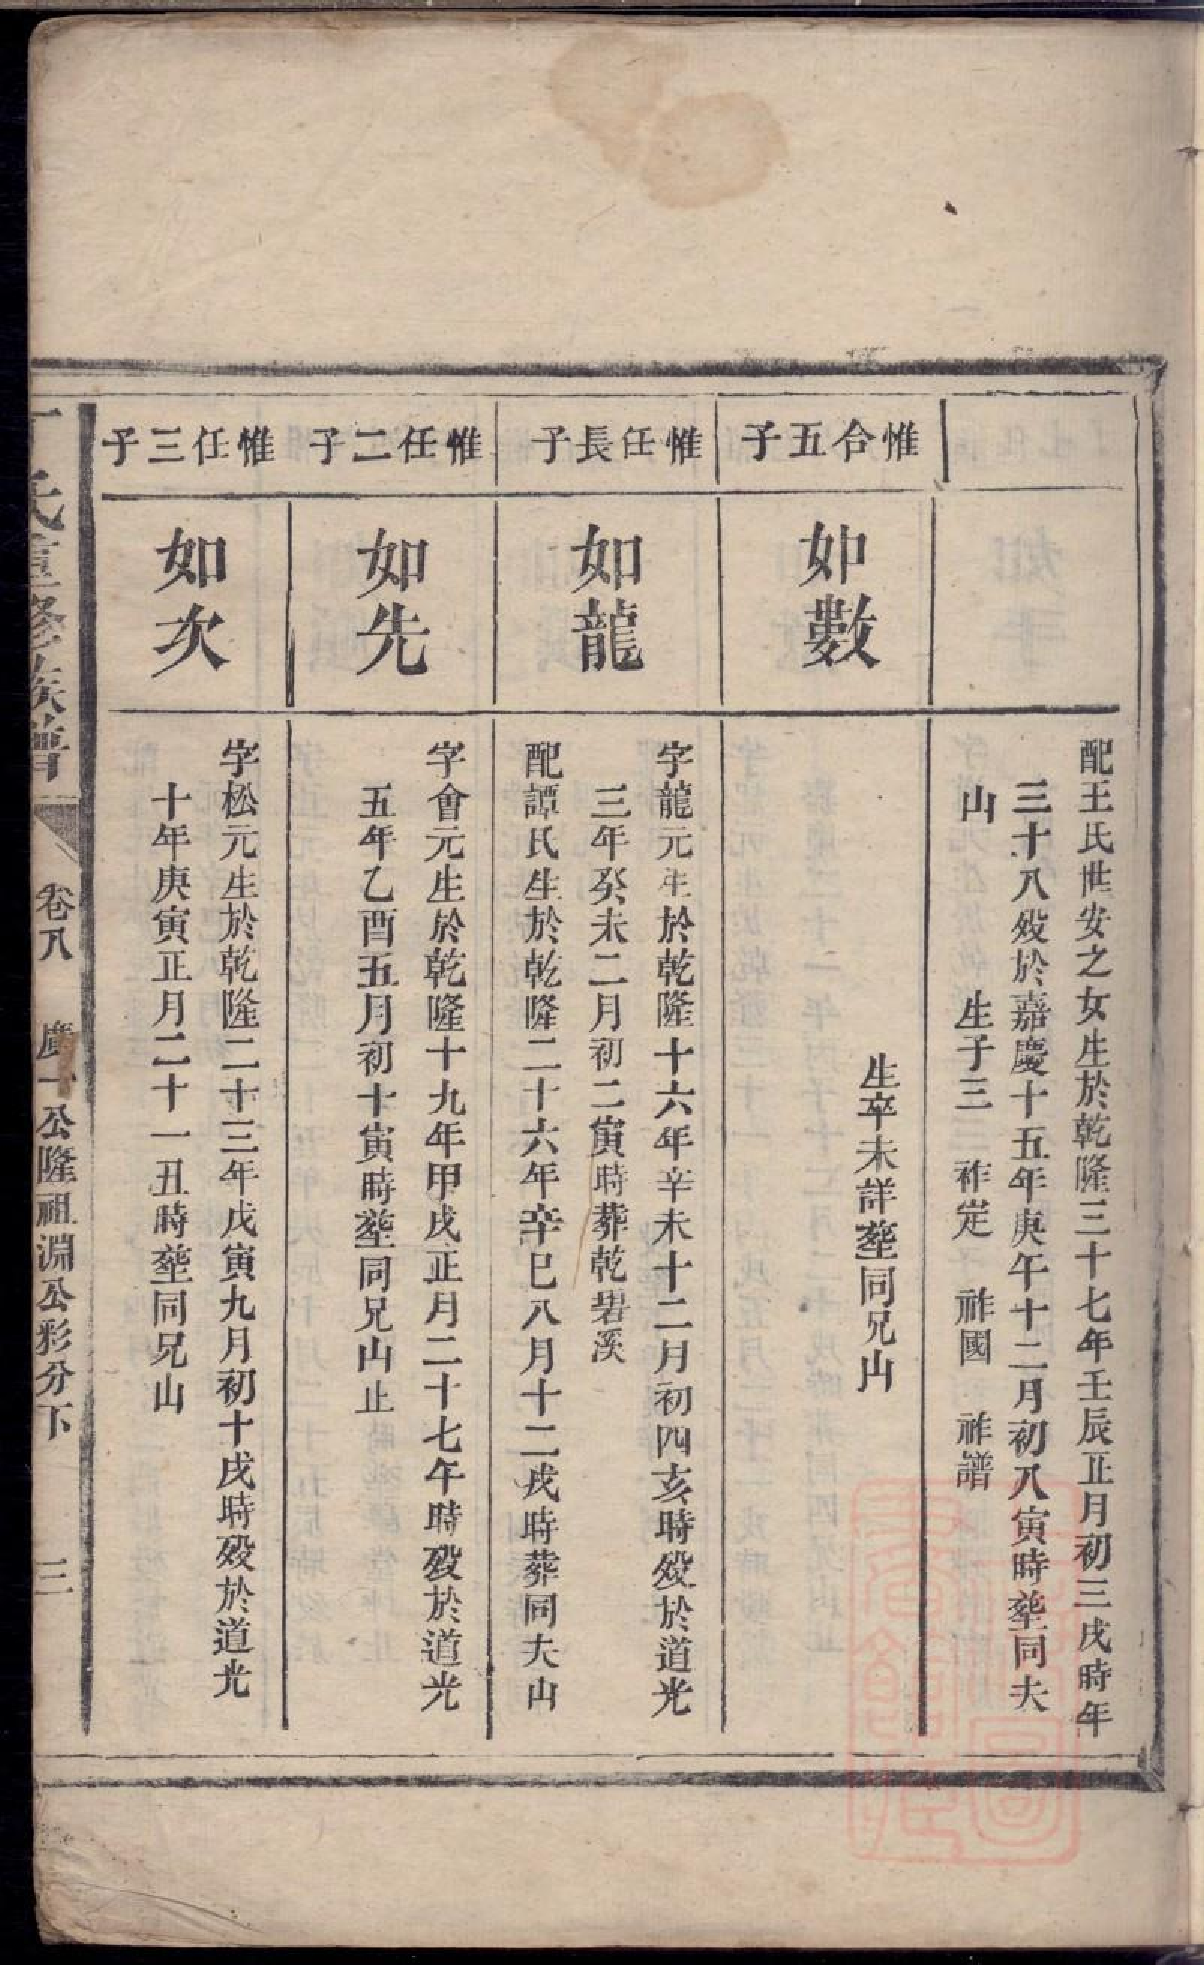 配王氏世安之女生於乾隆三十七年壬辰正月初三戌時年
三十八歿於嘉慶十五年庚午十二月初八寅時塟同夫
山　生子三　祚定　祚國　祚譜
惟合五子
如數
生卒未詳塟同兄山
惟任長子
如龍
字龍元生於乾隆十六年辛未十二月初四亥時歿於道光
三年癸未二月初二寅時葬乾碧溪
配譚氏生於乾隆二十六年辛巳八月十二戌時葬同夫山
惟任二子
如先
字會元生於乾隆十九年甲戌正月二十七午時歿於道光
五年乙酉五月初十寅時塟同兄山止
惟任三子
如次
字松元生於乾隆二十三年戊寅九月初十戌時歿於道光
十年庚寅正月二十一丑時塟同兄山
丁氏重修族譜　卷八　廣一公隆祖淵公彩分下　三